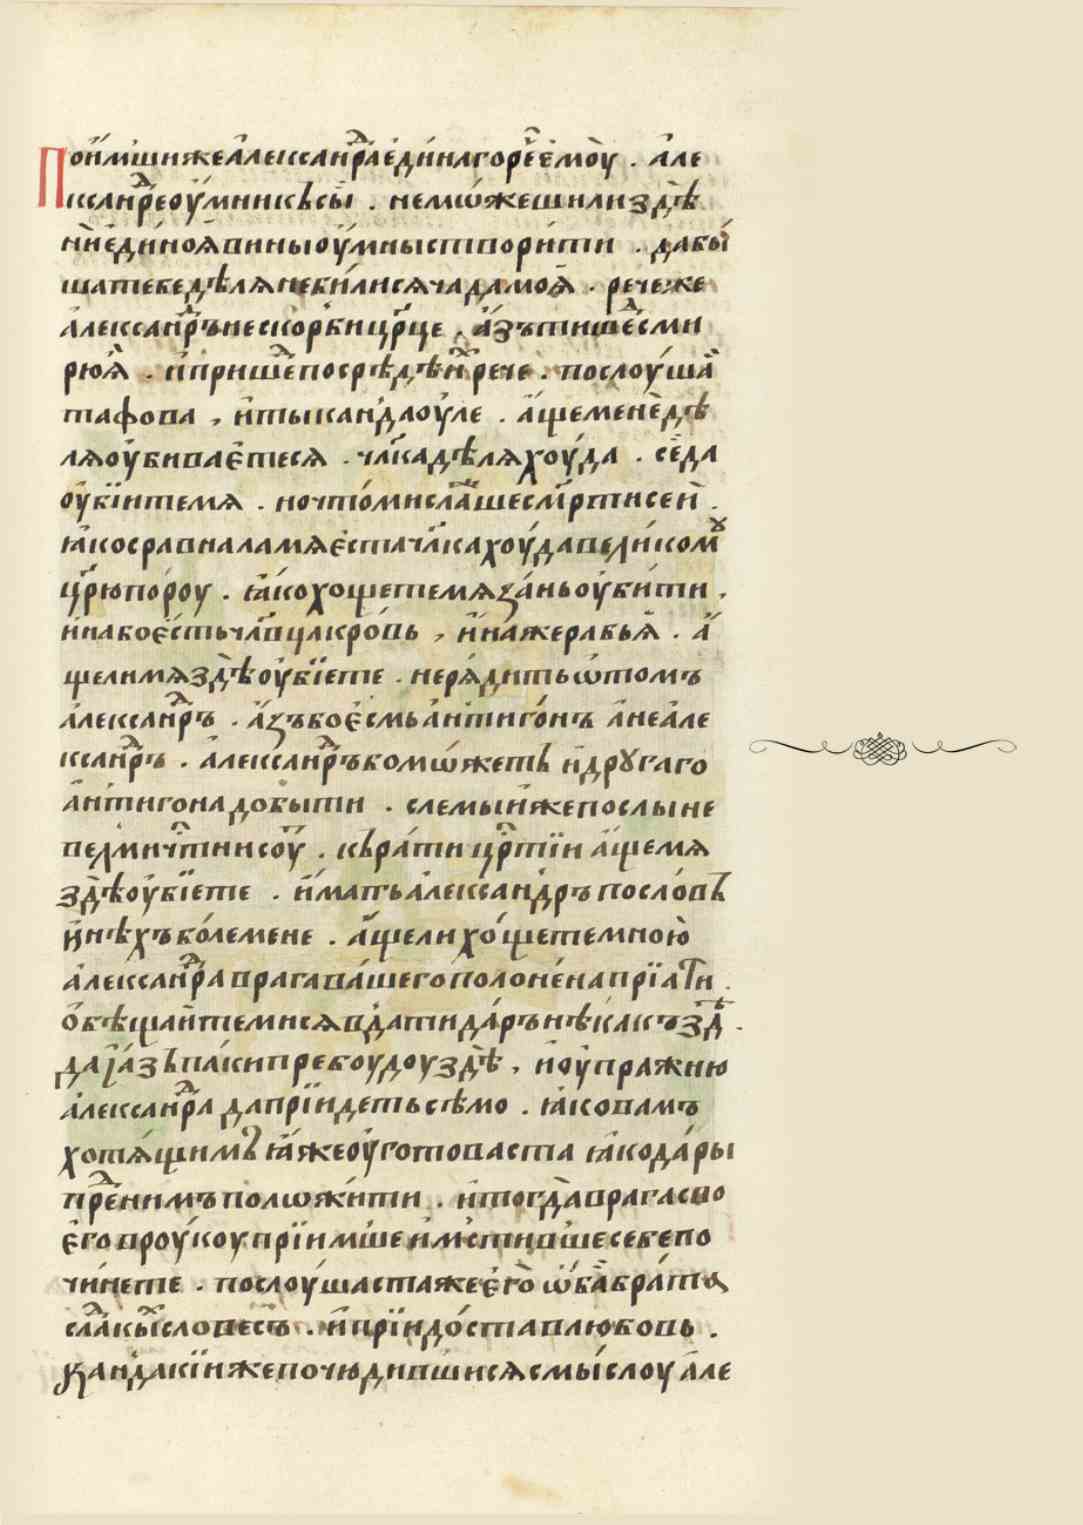 Поимши же алеѯандра едина горе ему . але
ксандре оумник̾ сы . не можеши ли здѣ
ни единоя вины оумны створити . дабы
ша тебе дѣля не билися чада моя . рече же
александръ не скорби црце . азъ ти ше сми
рюя . и пришед посрѣдѣ их рече . послоуша
тафова , и ты кандаоуле . аще мене дѣ
ля оубиваетеся . члка дѣля хоуда . седа
оубиите мя . но что ми слава ше смрти сеи .
ꙗко сравнала мя еста члка хоуда великомꙋ
црю пороу . ꙗко хощете мя за нь оубити .
ина бо есть члвца кровь , и ина же рабья . а
ще ли мя здѣ оубїете . не рядить ѡ томъ
александръ . азъ бо есмь антигонъ а не але
ксандръ . александръ бо мѡжеть и дрꙋгаго
антигона добыти . слемыи же послы не
велми чтни соу . к брати црстїи аще мя
здѣ оубїете . имать александръ пословъ
инѣхъ боле мене . аще ли хощете мною
александра врага вашего полонена прїати .
обѣщаите ми ся вдати даръ нѣкакъ здѣ .
да ꙗ азъ паки пребоудоу здѣ , и оупражню
александра да прїидеть сѣмо . ꙗко вам
хотящимъ ꙗже оуготоваста ꙗко дары
пред нимъ положити . и тогда врага сво
его в роукоу прїимше и мстивше себе по
чинете . послоушаста же его ѡба брата
сладкыи словесъ . и прїидоста в любовь .
кандакїи же почюдившися смыслоу але